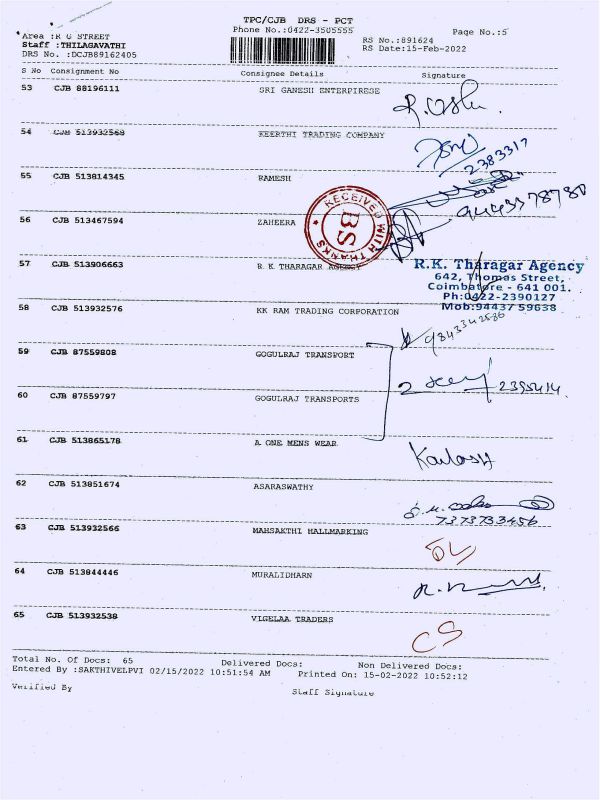 TPC/CJB DRS - PCT
Phone No.:0422-3505555
Page No.:5
Area :R G STREET
RS No.:891624
Staff :THILAGAVATHI
RS Date:15-Feb-2022
DRS No. :DCJB89162405
S No Consignment No Consignee Details Signature
53 CJB 88196111 SRI GANESH ENTERPIRESE
54 CJB 513932568 KEERTHI TRADING COMPANY
2383317
55 CJB 513814345 RAMESH
RECEIVED WITH THANKS
BS
9443378780
56 CJB 513467594 ZAHEERA
57 CJB 513906663 R K THARAGAR AGENCY
R.K. Tharagar Agency
642, Thomas Street,
Coimbatore - 641 001.
Ph:0422-2390127
Mob:94437 59638
58 CJB 513932576 KK RAM TRADING CORPORATION
9843342586
59 CJB 87559808 GOGULRAJ TRANSPORT
60 CJB 87559797 GOGULRAJ TRANSPORTS
2395414.
61 CJB 513865178 A ONE MENS WEAR
Kailash
62 CJB 513851674 ASARASWATHY
7373733456
63 CJB 513932566 MAHSAKTHI HALLMARKING
64 CJB 513844446 MURALIDHARN
65 CJB 513932538 VIGELAA TRADERS
CS
Total No. Of Docs: 65 Delivered Docs: Non Delivered Docs:
Entered By :SAKTHIVELPVI 02/15/2022 10:51:54 AM Printed On: 15-02-2022 10:52:12
Verified By Staff Signature